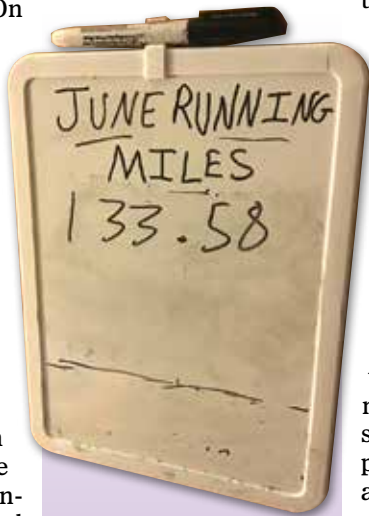 JUNE RUNNING
MILES
133.58